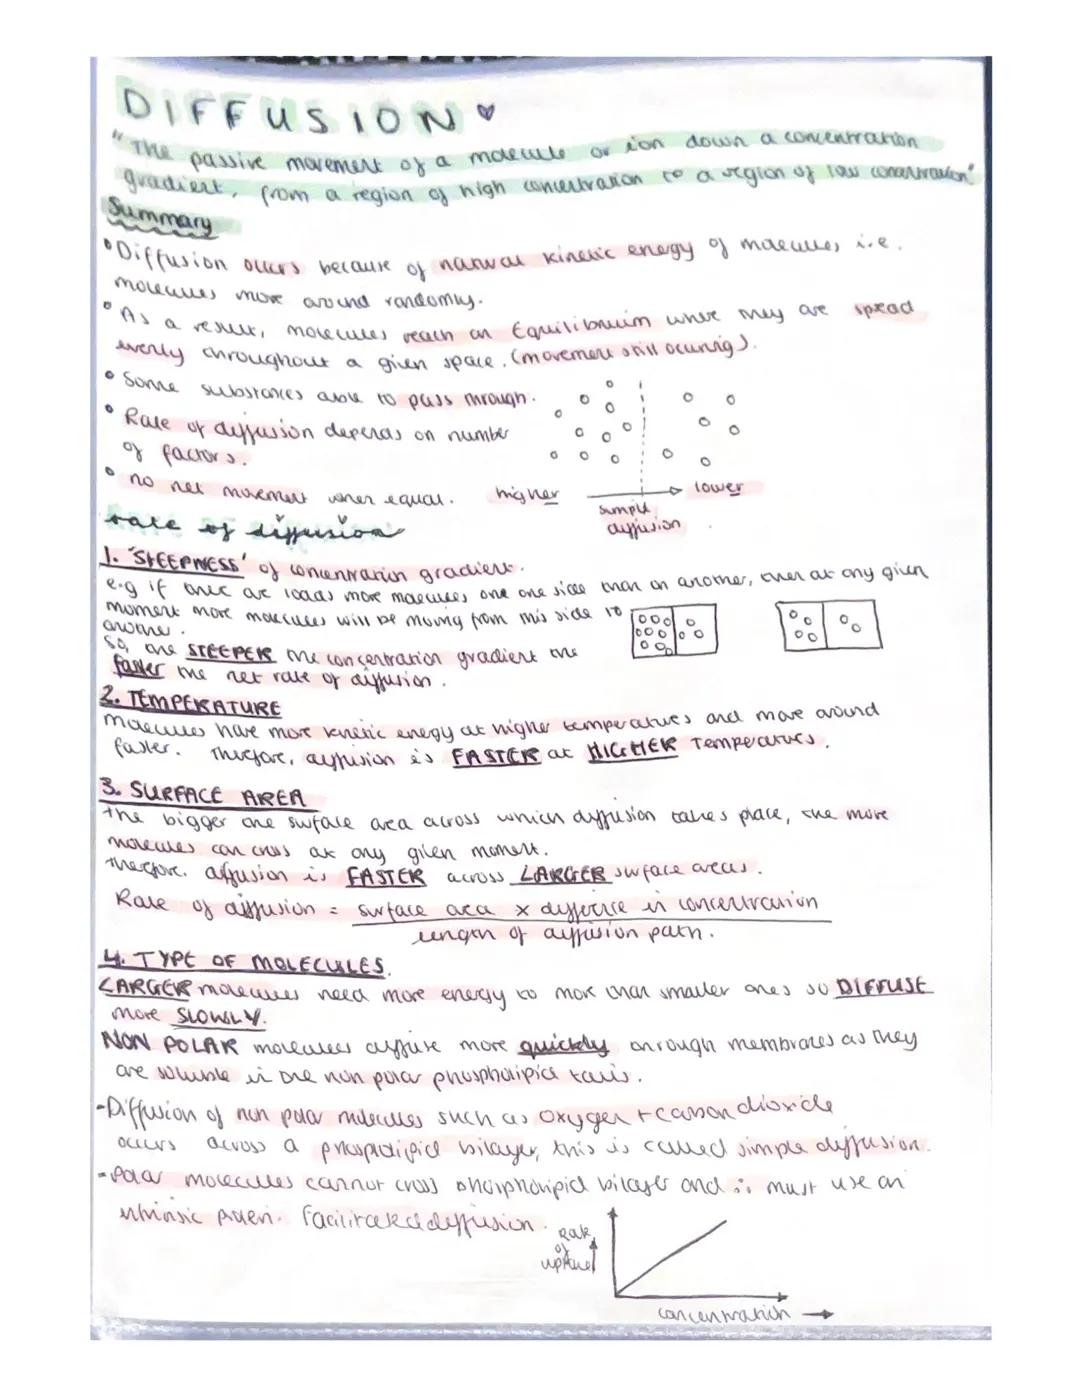 DIFFUSION ♥
"The passive movement of a molecule or ion down a concentration
gradient, from a region of high concentration to a region of low concentration"
Summary
• Diffusion occurs because of natural kinetic energy of molecules, i.e.
molecules move around randomly.
• As a result, molecules reach an Equilibruim where they are spread
evenly throughout a given space. (movement still occuring).
• Some substances able to pass through.
• Rate of diffusion depends on number
of factors.
• no net movement when equal.
higher
lower
simple
diffusion
rate of diffusion
1. 'STEEPNESS' of concentration gradient.
e.g if there are loads more molecules one one side than on another, then at any given
moment more molecules will be moving from this side to
another.
So, the STEEPER the concentration gradient the
faster the net rate of diffusion.
2. TEMPERATURE
molecules have more kinetic energy at higher temperatures and move around
faster. Therefore, diffusion is FASTER at HIGHER Temperatures.
3. SURFACE AREA
the bigger the surface area across which diffusion takes place, the more
molecules can cross at any given moment.
therefore, diffusion is FASTER across LARGER surface areas.
Rate of diffusion = surface area x difference in concentration
length of diffusion path.
4. TYPE OF MOLECULES.
LARGER molecules need more energy to move than smaller ones so DIFFUSE
more SLOWLY.
NON POLAR molecules diffuse more quickly through membranes as they
are soluble in the non polar phospholipid tails.
-Diffusion of non polar molecules such as oxygen + carbon dioxide
occurs across a phospholipid bilayer, this is called simple diffusion.
-Polar molecules cannot cross phospholipid bilayer and ∴ must use an
intrinsic protein. facilitated diffusion.
Rate
of
uptake
concentration →